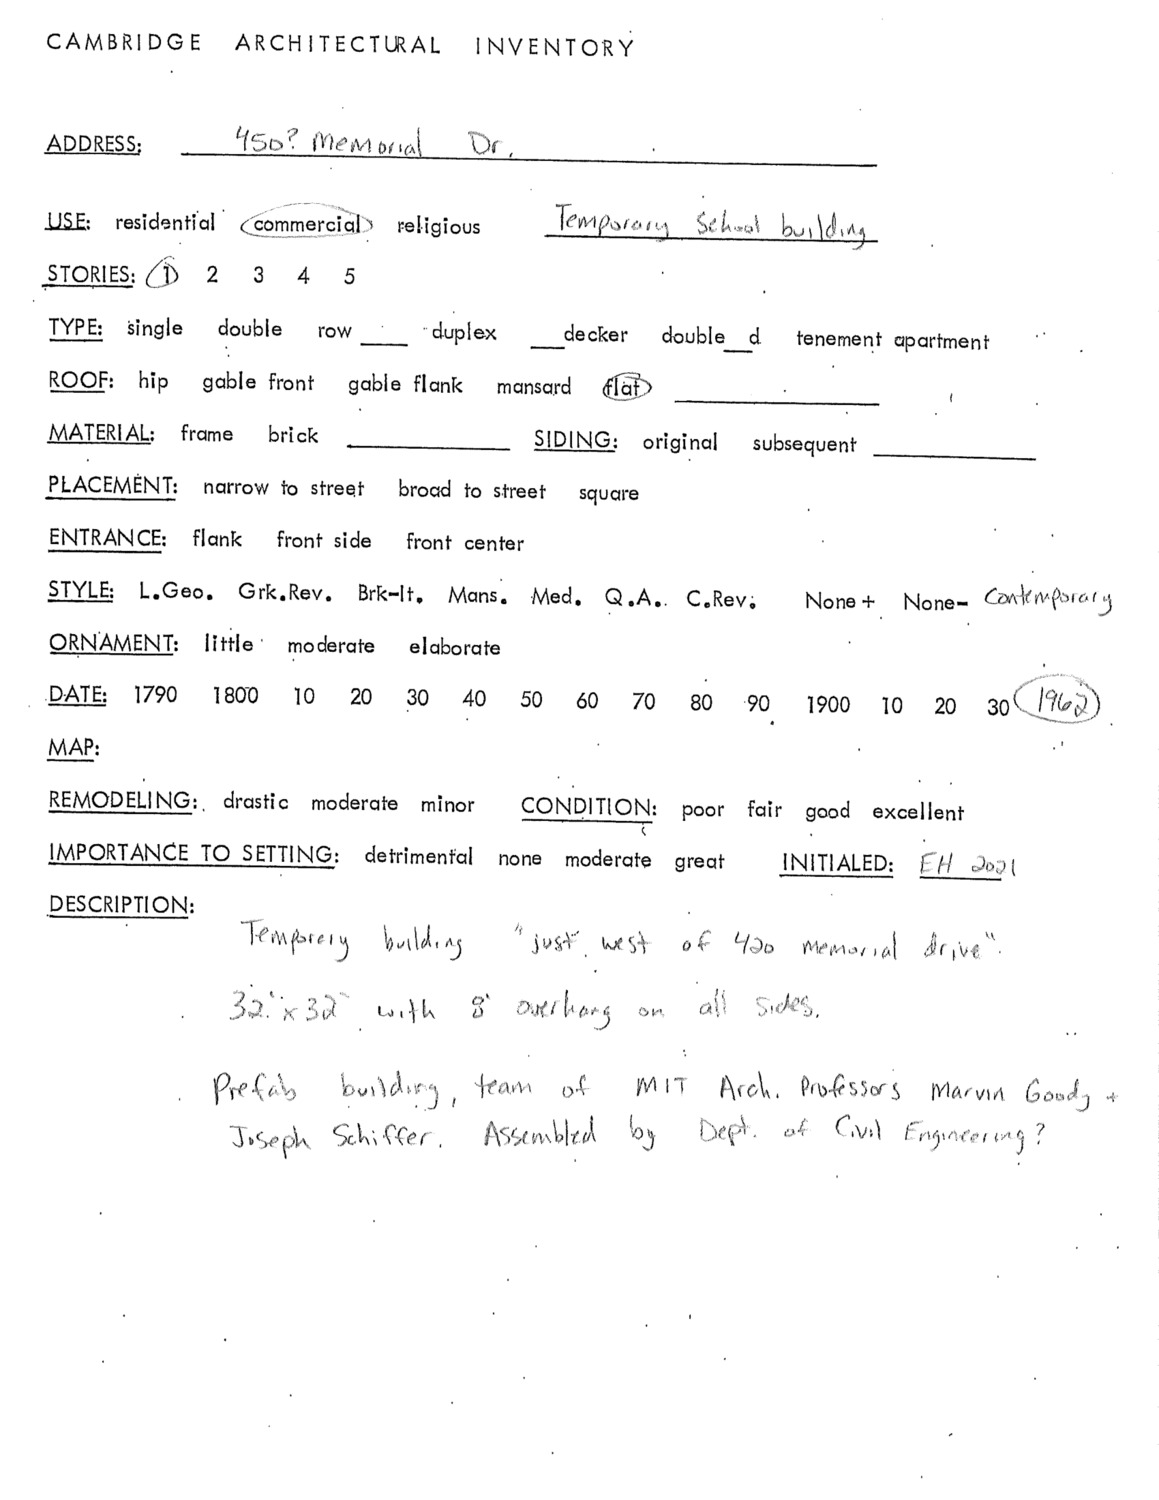 CAMBRIDGE ARCHITECTURAL INVENTORY
ADDRESS: 450? Memorial Dr.
USE: residential commercial religious Temporary School building
STORIES: 1 2 3 4 5
TYPE: single double row ___ duplex ___decker double__d tenement apartment
ROOF: hip gable front gable flank mansard flat
MATERIAL: frame brick SIDING: original subsequent
PLACEMENT: narrow to street broad to street square
ENTRANCE: flank front side front center
STYLE: L.Geo. Grk.Rev. Brk-It. Mans. Med. Q.A. C.Rev. None+ None- Contemporary
ORNAMENT: little moderate elaborate
DATE: 1790 1800 10 20 30 40 50 60 70 80 90 1900 10 20 30 1962
MAP:
REMODELING: drastic moderate minor CONDITION: poor fair good excellent
IMPORTANCE TO SETTING: detrimental none moderate great INITIALED: EH 2021
DESCRIPTION:
Temporery building "just west of 420 memorial drive".
32' x 32' with 8' overhang on all sides.
Prefab building, team of MIT Arch. Professors Marvin Goody +
Joseph Schiffer. Assembled by Dept. of Civil Engineering?